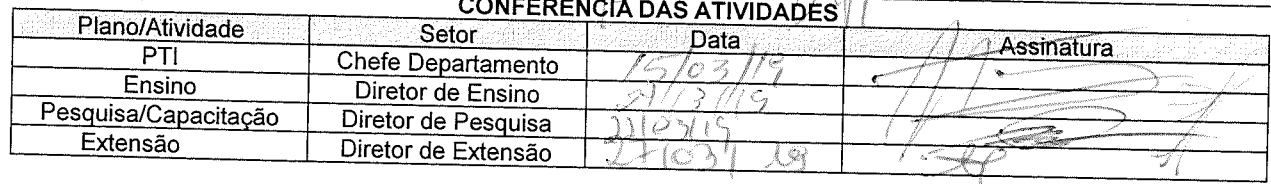 CONFERÊNCIA DAS ATIVIDADES
Plano/Atividade Setor Data Assinatura
PTI Chefe Departamento 15/03/19
Ensino Diretor de Ensino
Pesquisa/Capacitação Diretor de Pesquisa 22/03/19
Extensão Diretor de Extensão 27/03/19